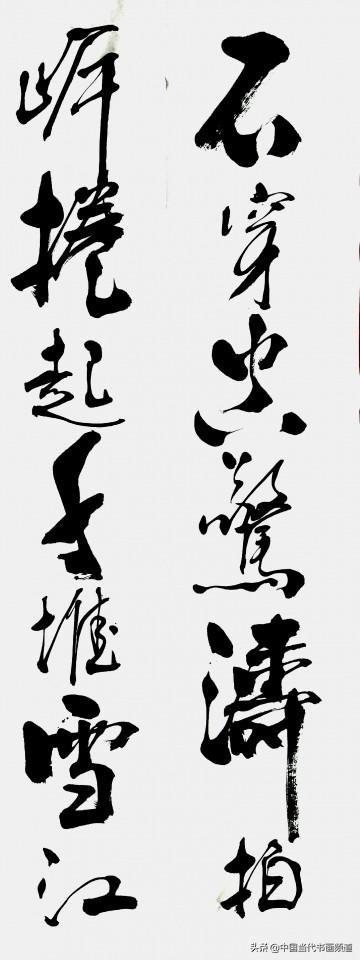 石穿空驚濤拍
岸捲起千堆雪江
头条@中国当代书画频道